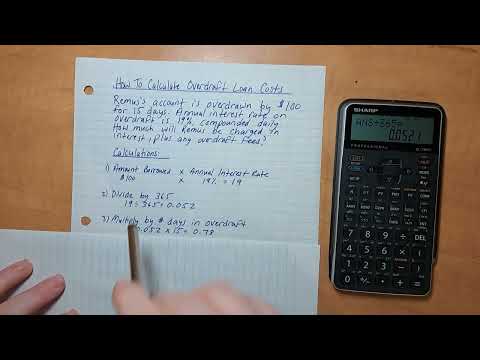 How To Calculate Overdraft Loan Costs
Remus's account is overdrawn by $100
for 15 days. Annual interest rate on
overdraft is 19%, compounded daily.
How much will Remus be charged in
interest, plus any overdraft fees?
Calculations:
1) Amount Borrowed x Annual Interest Rate
$100 x 19% = 19
2) Divide by 365
19 ÷ 365 = 0.052
3) Multiply by # days in overdraft
0.052 x 15 = 0.78
SHARP
ANS÷365=
0.0521
PROFESSIONAL
DEL